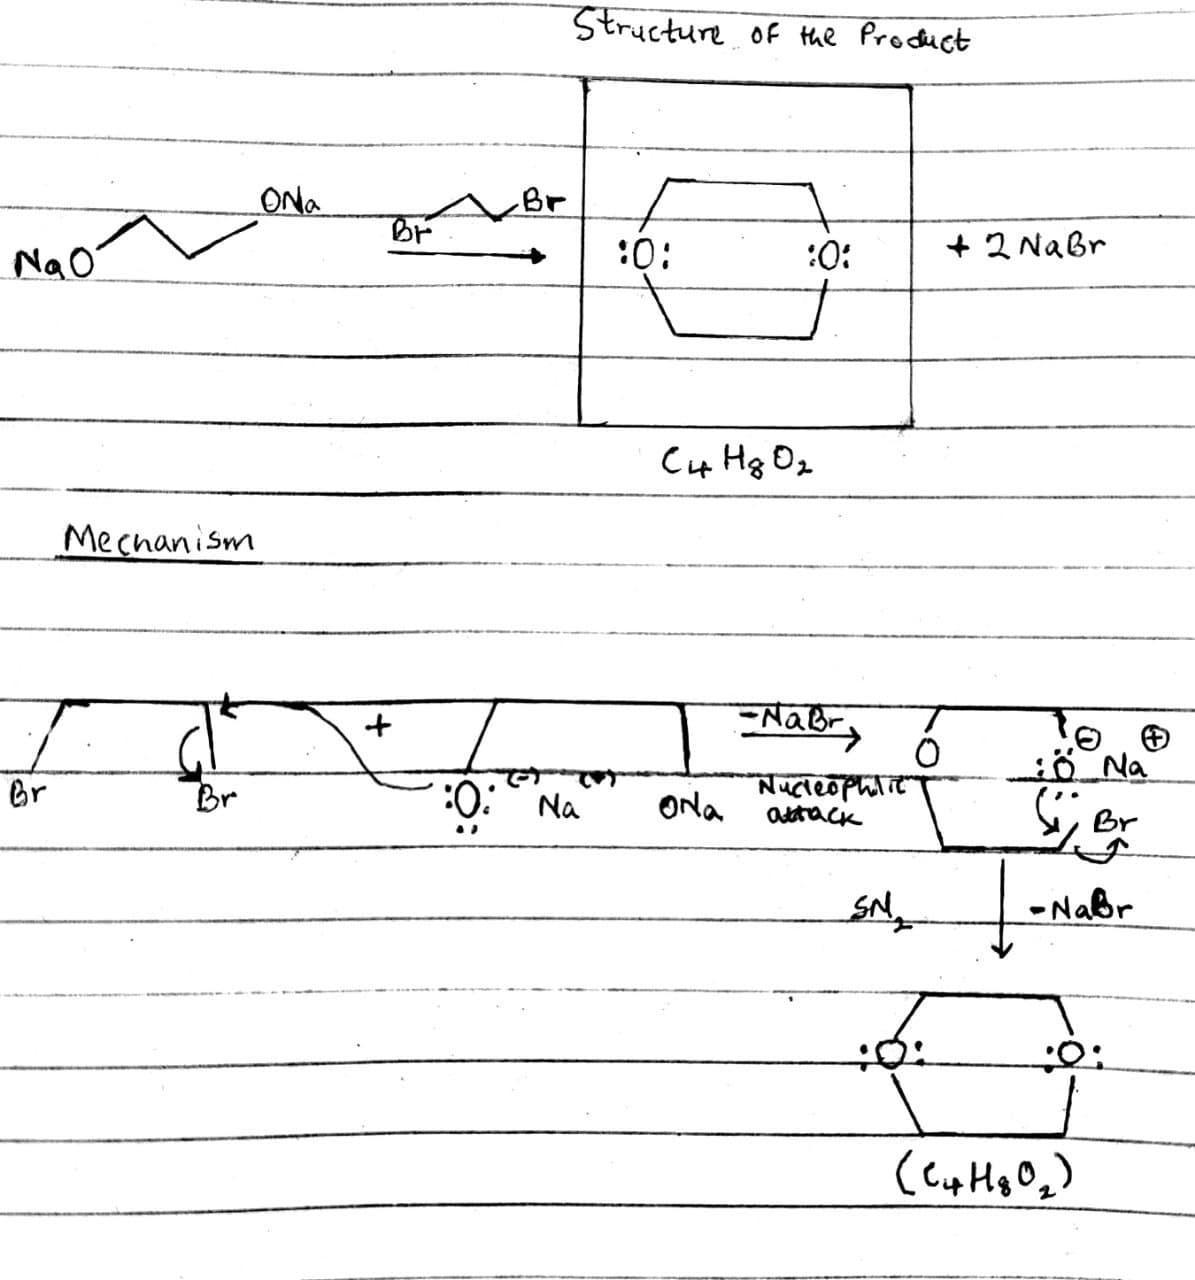 Structure of the Product
NaO ONa
Br Br
:O: :O:
+ 2 NaBr
C₄H₈O₂
Mechanism
Br Br
+
:O: (-) Na (+) ONa
-NaBr
Nucleophilic
attack
O :O: ⊖ Na ⊕
Br
SN₂ -NaBr
:O: :O:
(C₄H₈O₂)